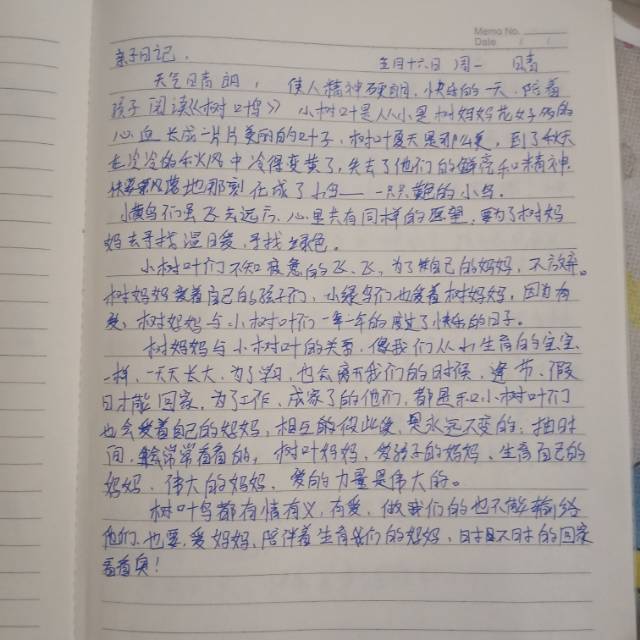 Memo No.
Date / /
亲子日记.
五月十六日 周一 晴
天气晴朗, 使人精神硬朗, 快乐的一天, 陪着
孩子阅读《树叶鸟》 小树叶是从小是树妈妈花好多的
心血长成一片片美丽的叶子, 树叶夏天是那么美, 到了秋天
在冷冷的秋风中冷得变黄了, 失去了他们的鲜亮和精神
落地那刻化成了小鸟——一只只靓的小鸟.
小黄鸟们虽飞去远方, 心里共有同样的愿望, 要为了树妈
妈去寻找温日爱, 寻找绿色。
小树叶们不知疲惫的飞、飞, 为了自己的妈妈, 不放弃。
树妈妈爱着自己的孩子们, 小绿鸟们也爱着树妈妈, 因为有
爱, 树妈妈与小树叶们一年一年的度过了快乐的日子。
树妈妈与小树叶的关系, 像我们从小生育的宝宝
一样, 一天天长大, 为了学习, 也会离开我们的时候, 逢节、假
日才能回家, 为了工作, 成家了的他们, 都是和小树叶们
也会爱着自己的妈妈, 相互的彼此使, 是永远不变的, 抽时
间, 会常常看看的, 树叶妈妈, 爱孩子的妈妈, 生育自己的
妈妈, 伟大的妈妈, 爱的力量是伟大的。
树叶鸟都有情有义, 有爱, 做我们的也不能输给
他们, 也要爱妈妈, 陪伴着生育我们的妈妈, 时不时的回家
看看奥!